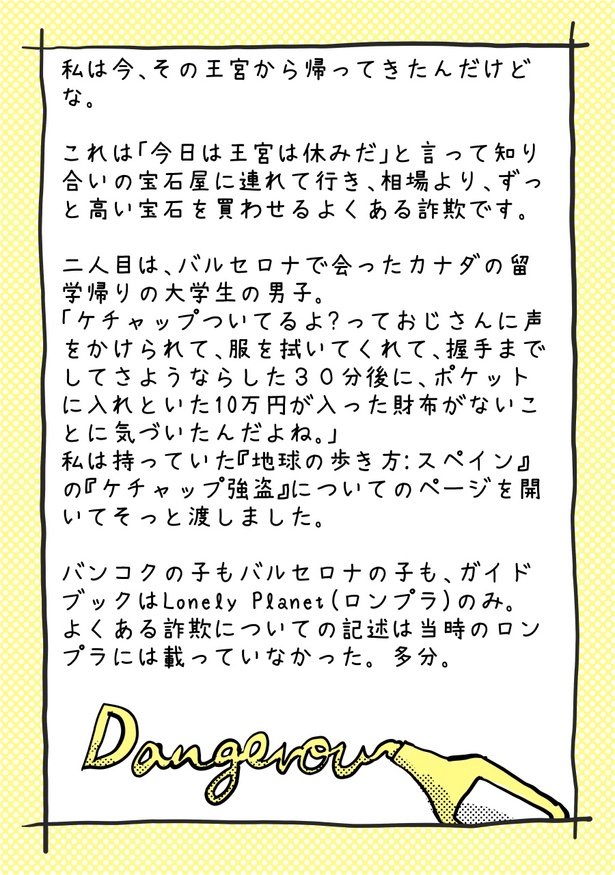 私は今、その王宮から帰ってきたんだけど
な。
これは「今日は王宮は休みだ」と言って知り
合いの宝石屋に連れて行き、相場より、ずっ
と高い宝石を買わせるよくある詐欺です。
二人目は、バルセロナで会ったカナダの留
学帰りの大学生の男子。
「ケチャップついてるよ?っておじさんに声
をかけられて、服を拭いてくれて、握手まで
してさようならした30分後に、ポケット
に入れといた10万円が入った財布がないこ
とに気づいたんだよね。」
私は持っていた『地球の歩き方:スペイン』
の『ケチャップ強盗』についてのページを開
いてそっと渡しました。
バンコクの子もバルセロナの子も、ガイド
ブックはLonely Planet(ロンプラ)のみ。
よくある詐欺についての記述は当時のロン
プラには載っていなかった。多分。
Dangerous